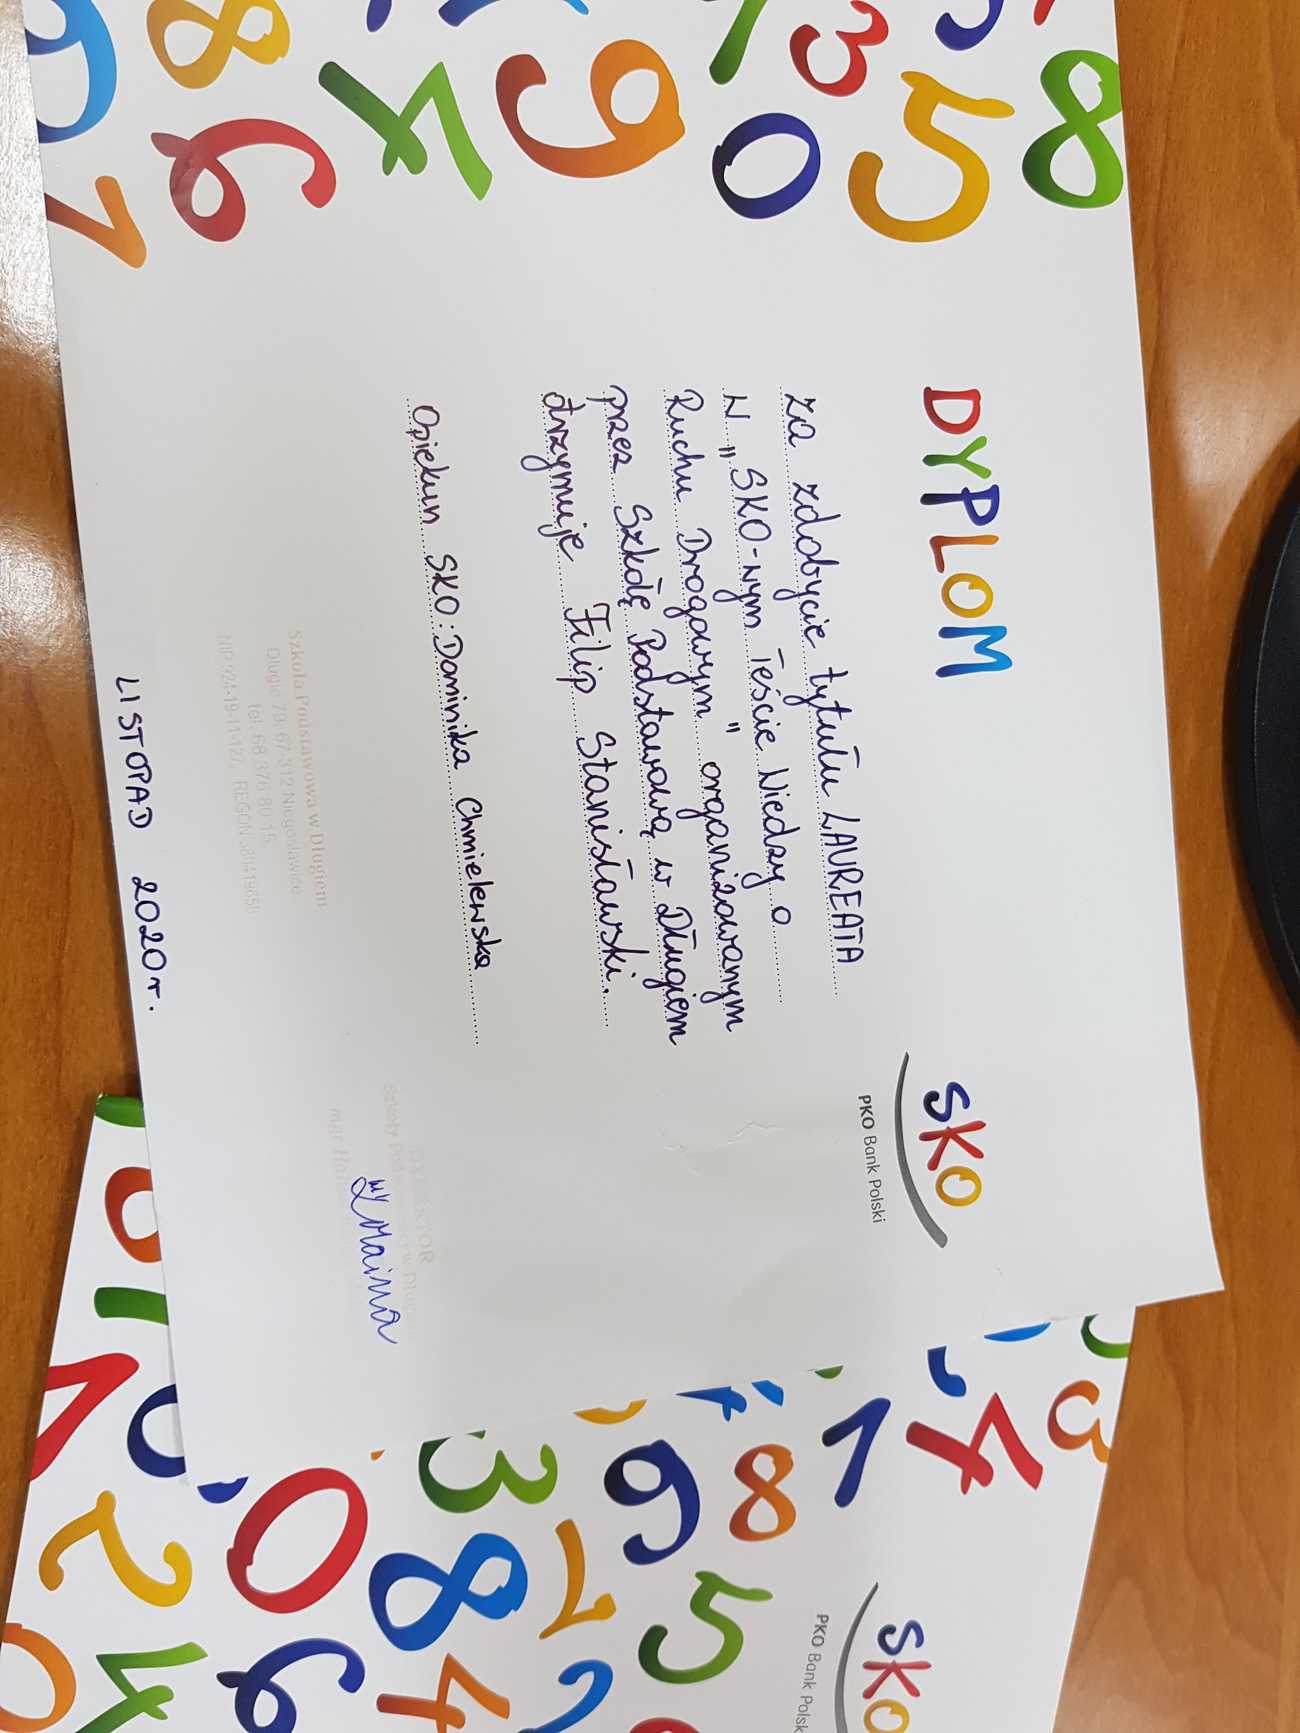 DYPLOM
SKO
PKO Bank Polski
za zdobycie tytułu LAUREATA
w "SKO-wym Teście Wiedzy o
Ruchu Drogowym" organizowanym
przez Szkołę Podstawową w Długiem
otrzymuje Filip Stanisławski.
Opiekun SKO: Dominika Chmielewska
Szkoła Podstawowa w Długiem
Długie 73, 67-312 Niegosławice
tel. 68 376 80 15
NIP 924-19-11-127, REGON
DYREKTOR
mgr
LISTOPAD 2020r.
SKO
PKO Bank Polsk